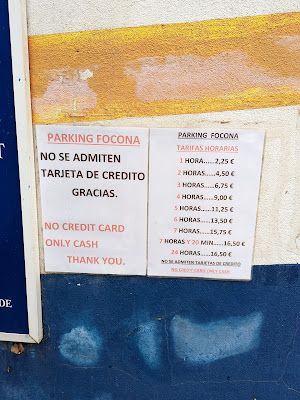 PARKING FOCONA
NO SE ADMITEN
TARJETA DE CREDITO
GRACIAS.
NO CREDIT CARD
ONLY CASH
THANK YOU.
PARKING FOCONA
TARIFAS HORARIAS
1 HORA.....2,25 €
2 HORAS.....4,50 €
3 HORAS.....6,75 €
4 HORAS.....9,00 €
5 HORAS.....11,25 €
6 HORAS.....13,50 €
7 HORAS.....15,75 €
7 HORAS Y 20 MIN.....16,50 €
24 HORAS.....16,50 €
NO SE ADMITEN TARJETAS DE CREDITO
NO CREDIT CARDS ONLY CASH
DE